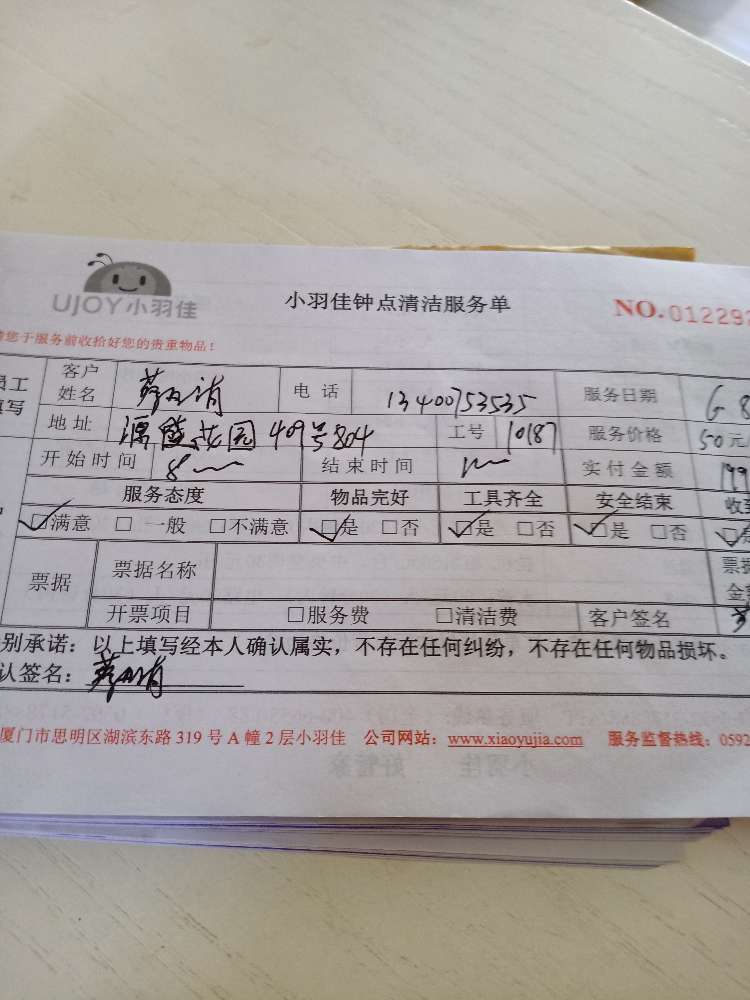 UJOY小羽佳
小羽佳钟点清洁服务单
NO.012292
请您于服务前收拾好您的贵重物品！
员工填写
客户姓名 电话 13400753535 服务日期 6 8
地址 花园409号804 工号 10187 服务价格 50元
开始时间 8 结束时间 实付金额
服务态度 物品完好 工具齐全 安全结束 收
☑满意 □一般 □不满意 ☑是 □否 ☑是 □否 ☑是 □否 ☑是
票据 票据名称 票据金额
开票项目 □服务费 □清洁费 客户签名
别承诺：以上填写经本人确认属实，不存在任何纠纷，不存在任何物品损坏。
认签名：
厦门市思明区湖滨东路319号A幢2层小羽佳 公司网站：www.xiaoyujia.com 服务监督热线：0592